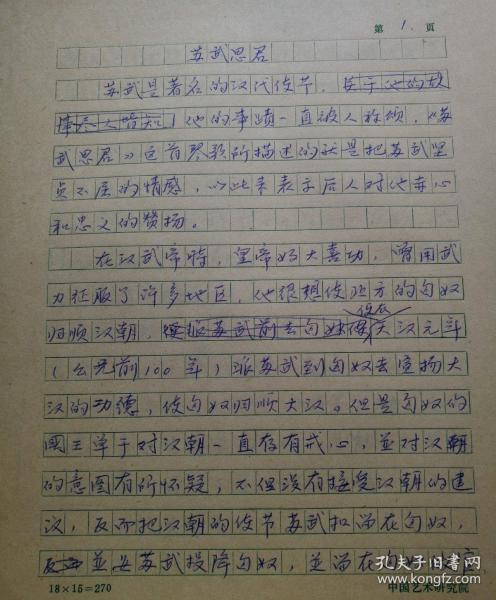 第 1 页
苏武思君
苏武是著名的汉代使节，关于他的故
事尽人皆知，他的事蹟一直被人称颂，《苏
武思君》这首琴歌所描述的就是把苏武坚
贞不屈的情感，以此来表示后人对他赤心
和忠义的赞扬。
在汉武帝时，皇帝好大喜功，曾用武
力征服了许多地区，他很想使北方的匈奴
归顺汉朝，天汉元年
（公元前100年）派苏武到匈奴去宣扬大
汉的功德，使匈奴归顺大汉。但是匈奴的
國王单于对汉朝一直存有戒心，並对汉朝
的意图有所怀疑，不但没有接受汉朝的建
议，反而把汉朝的使节苏武扣留在匈奴，
並要苏武投降匈奴，並留在匈奴
18×15=270
中国艺术研究院
孔夫子旧书网